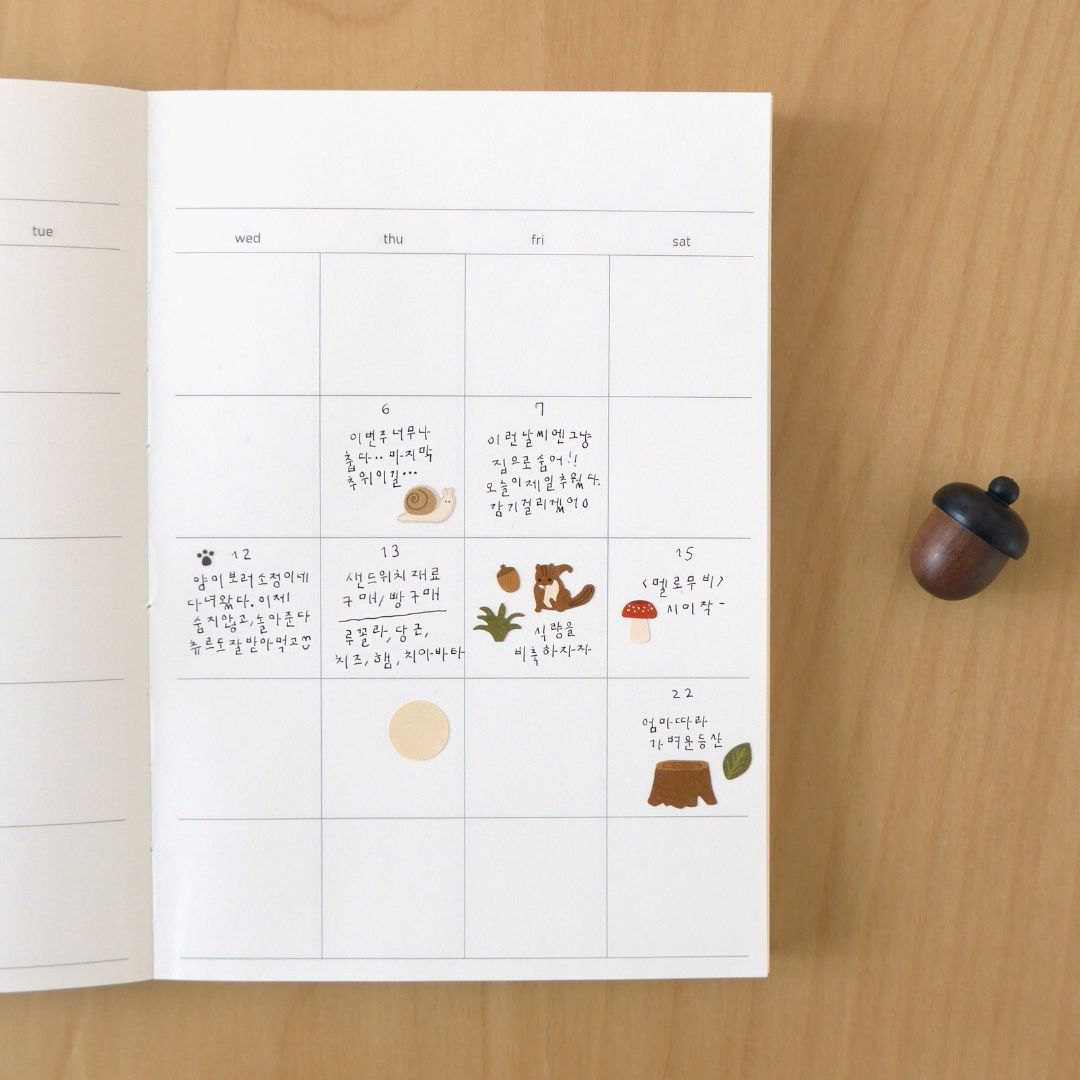 tue
wed
thu
fri
sat
6
이번주 너무나
춥다.. 마지막
추위이길...
7
이런날씨엔 그냥
집으로 숨어!!
오늘이 제일 추웠다.
감기걸리겠어ㅇ
12
양이보러 소정이네
다녀왔다. 이제
숨지않고, 놀아준다
츄르도 잘 받아먹고
13
샌드위치 재료
구매/빵구매
루꼴라, 당근,
치즈, 햄, 치아바타
식량을
비축하자자
15
<멜로무비>
시이작~
22
엄마따라
가벼운등산